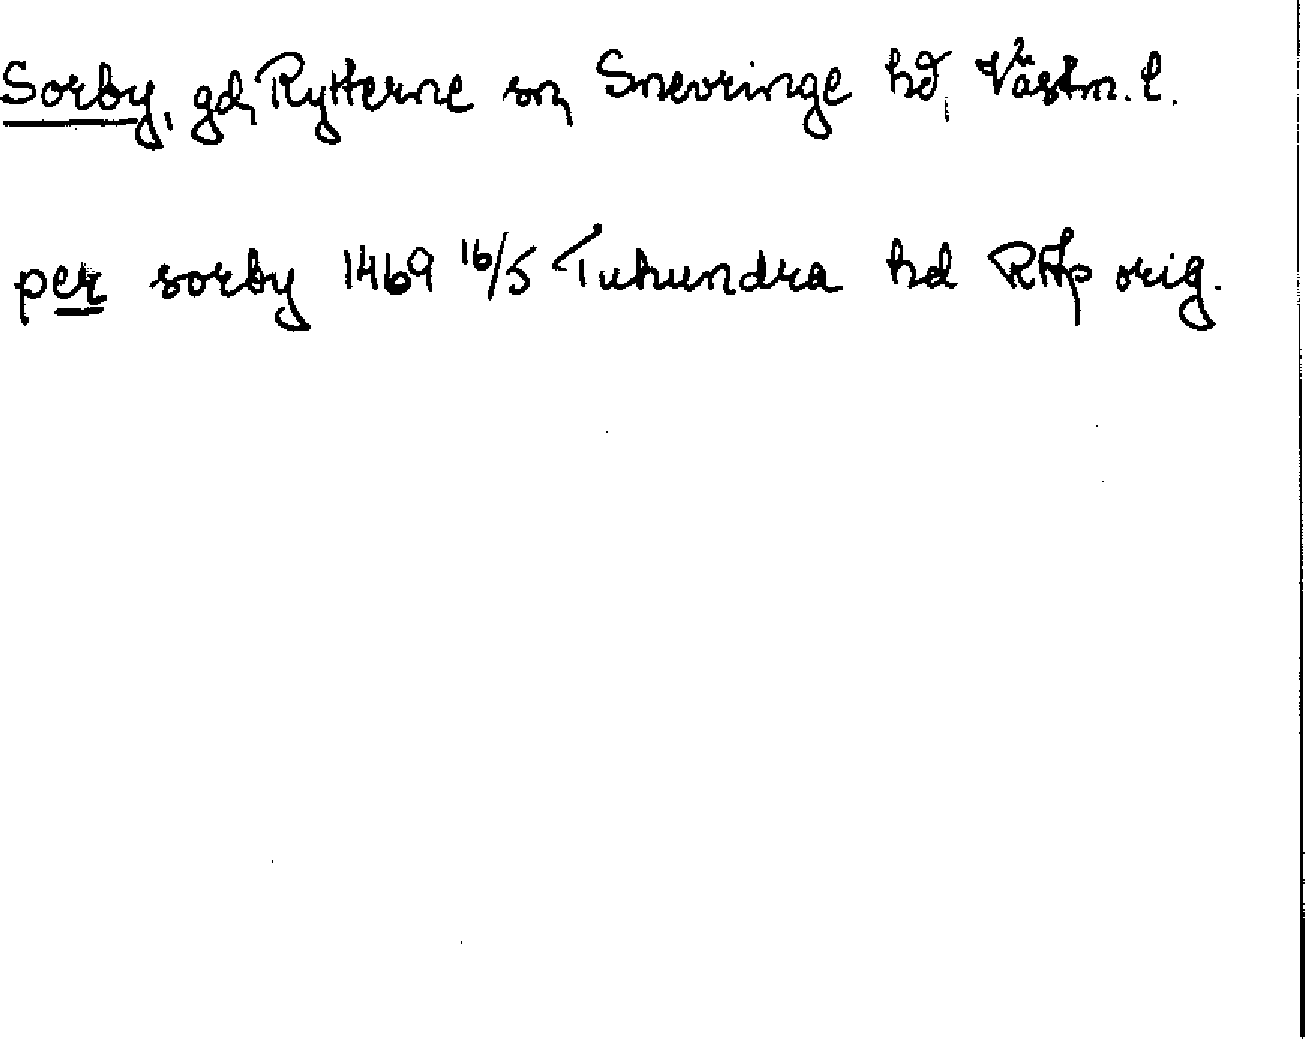 Sorby, gd, Rytterne sn, Snevringe hd, Västm. l.
per sorby 1469 16/5 Tuhundra hd RAp orig.